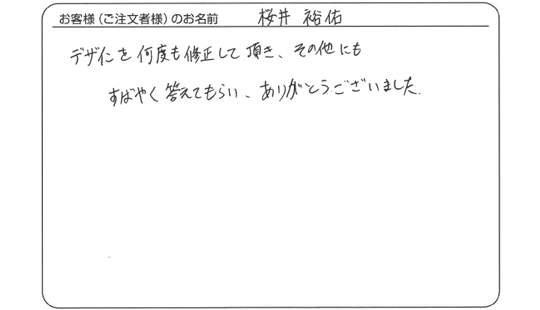 お客様（ご注文者様）のお名前 桜井 裕佑
デザインを何度も修正して頂き、その他にも
すばやく答えてもらい、ありがとうございました.